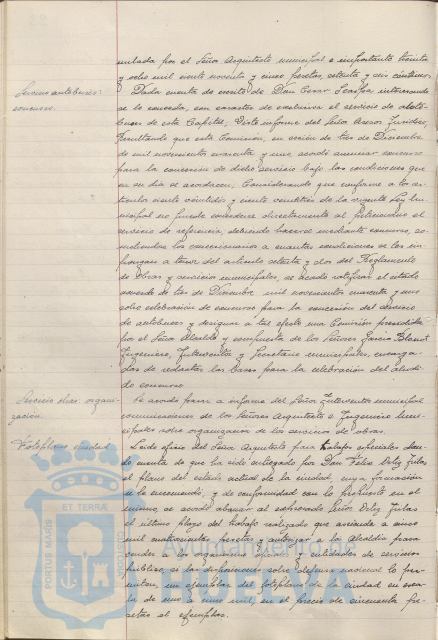 mulada por el Señor Arquitecto municipal e importante treinta
y ocho mil ciento noventa y cinco pesetas, setenta y seis céntimos.
Servicio autobuses:
concurso.
Dada cuenta de escrito de Don Cesar interesando
se le conceda, con caracter de exclusiva el servicio de
de esta Capital; Visto informe del Señor Asesor Juridico,
Resultando que esta Comisión, en sesión de tres de Diciembre
de mil novecientos cuarenta y uno, acordó anunciar concurso
para la concesión de dicho servicio bajo las condiciones que
en su dia se acordasen; Considerando que conforme a los ar-
tículos ciento veintidos y ciento veintitrés de la vigente Ley Mu-
nicipal no puede concederse directamente al peticionario el
servicio de referencia, debiendo hacerse mediante concurso, so-
metiendose los concesionarios a cuantas condiciones se les im-
pongan a tenor del artículo setenta y dos del Reglamento
de Obras y servicios municipales, se acordó ratificar el citado
acuerdo de tres de Diciembre mil novecientos cuarenta y uno
sobre celebración de concurso para la concesión del servicio
de autobuses y designar a tal efecto una Comisión presidida
por el Señor Alcalde y compuesta de los Señores Garcia Blanco,
Ingeniero, Interventor y Secretario municipales, encarga-
dos de redactar las bases para la celebración del aludi-
do concurso.
Servicio obras: organi-
zación.
Se acordó pasar a informe del Señor Interventor municipal
comunicaciones de los Señores Arquitecto e Ingeniero Muni-
cipales sobre organización de los servicios de obras.
Fotoplano ciudad.
Leido oficio del Señor Arquitecto para trabajos especiales dan-
do cuenta de que ha sido entregado por Don Felix Ortiz
el plano del estado actual de la ciudad, cuya formación
se le encomendó, y de conformidad con lo propuesto en el
mismo, se acordó abonar al expresado Señor Ortiz
el último plazo del trabajo realizado que asciende a cinco
mil cuatrocientas pesetas y autorizar a la Alcaldía para
vender a los organismos oficiales y entidades de servicios
públicos, si las disposiciones sobre defensa nacional lo per-
miten, un ejemplar del fotoplano de la ciudad en esca-
la de uno a uno mil, en el precio de cincuenta pe-
setas el ejemplar.
ET TERRA
PORTUS MAGIS
CUSTODIT
Ayuntamiento de